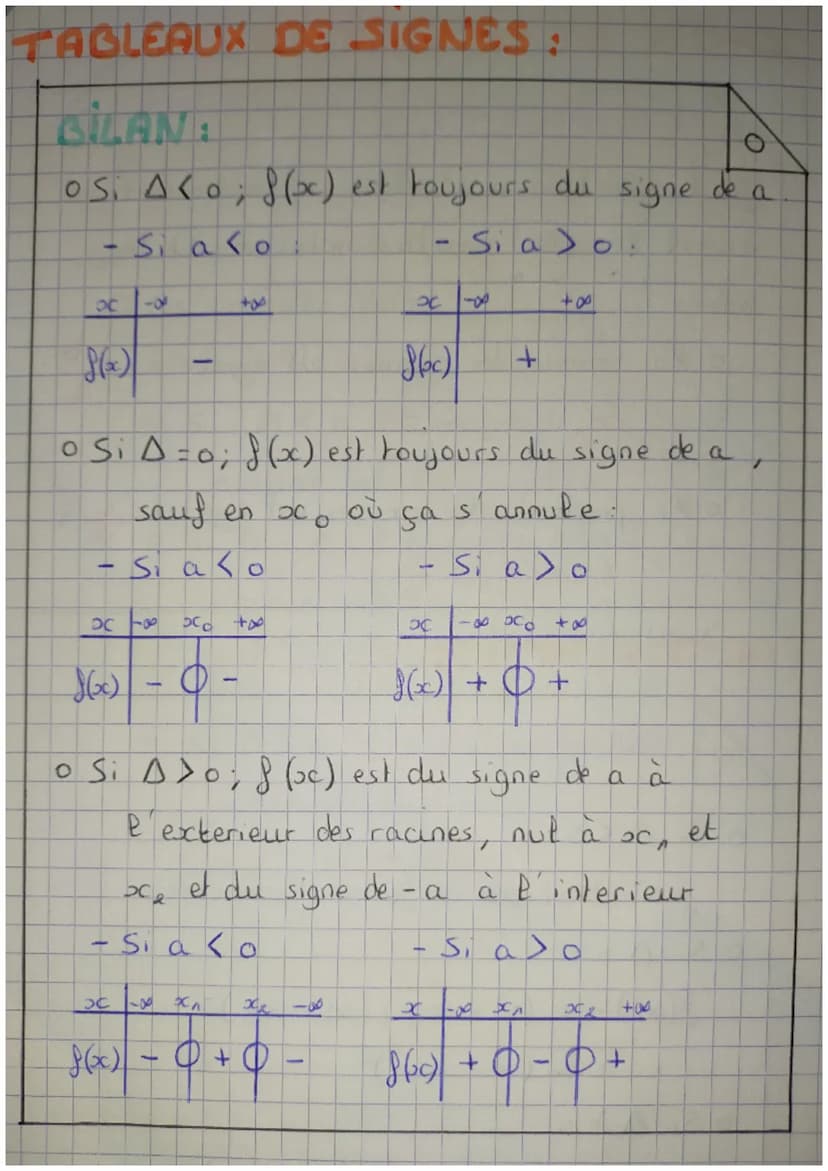 TABLEAUX DE SIGNES :
BILAN :
o Si Δ < 0 ; f(x) est toujours du signe de a.
- Si a < 0 : - Si a > 0 :
x -∞ +∞ x -∞ +∞
f(x) - f(x) +
o Si Δ = 0 ; f(x) est toujours du signe de a ,
sauf en x₀ où ça s'annule :
- Si a < 0 - Si a > 0
x -∞ x₀ +∞ x -∞ x₀ +∞
f(x) - 0 - f(x) + 0 +
o Si Δ > 0 ; f(x) est du signe de a à
l'exterieur des racines, nul à x₁ et
x₂ et du signe de -a à l'interieur
- Si a < 0 - Si a > 0
x -∞ x₁ x₂ -∞ x -∞ x₁ x₂ +∞
f(x) - 0 + 0 - f(x) + 0 - 0 +